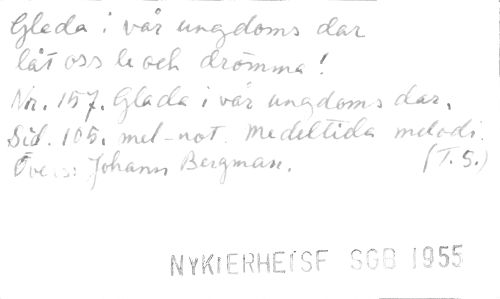 Glada i vår ungdoms dar
låt oss le och drömma!
Nr. 157. Glada i vår ungdoms dar.
Sid. 105. mel-not. Medeltida melodi.
Övers: Johann Bergman. (T.S.)
NYKIERHEISF SGB 1955